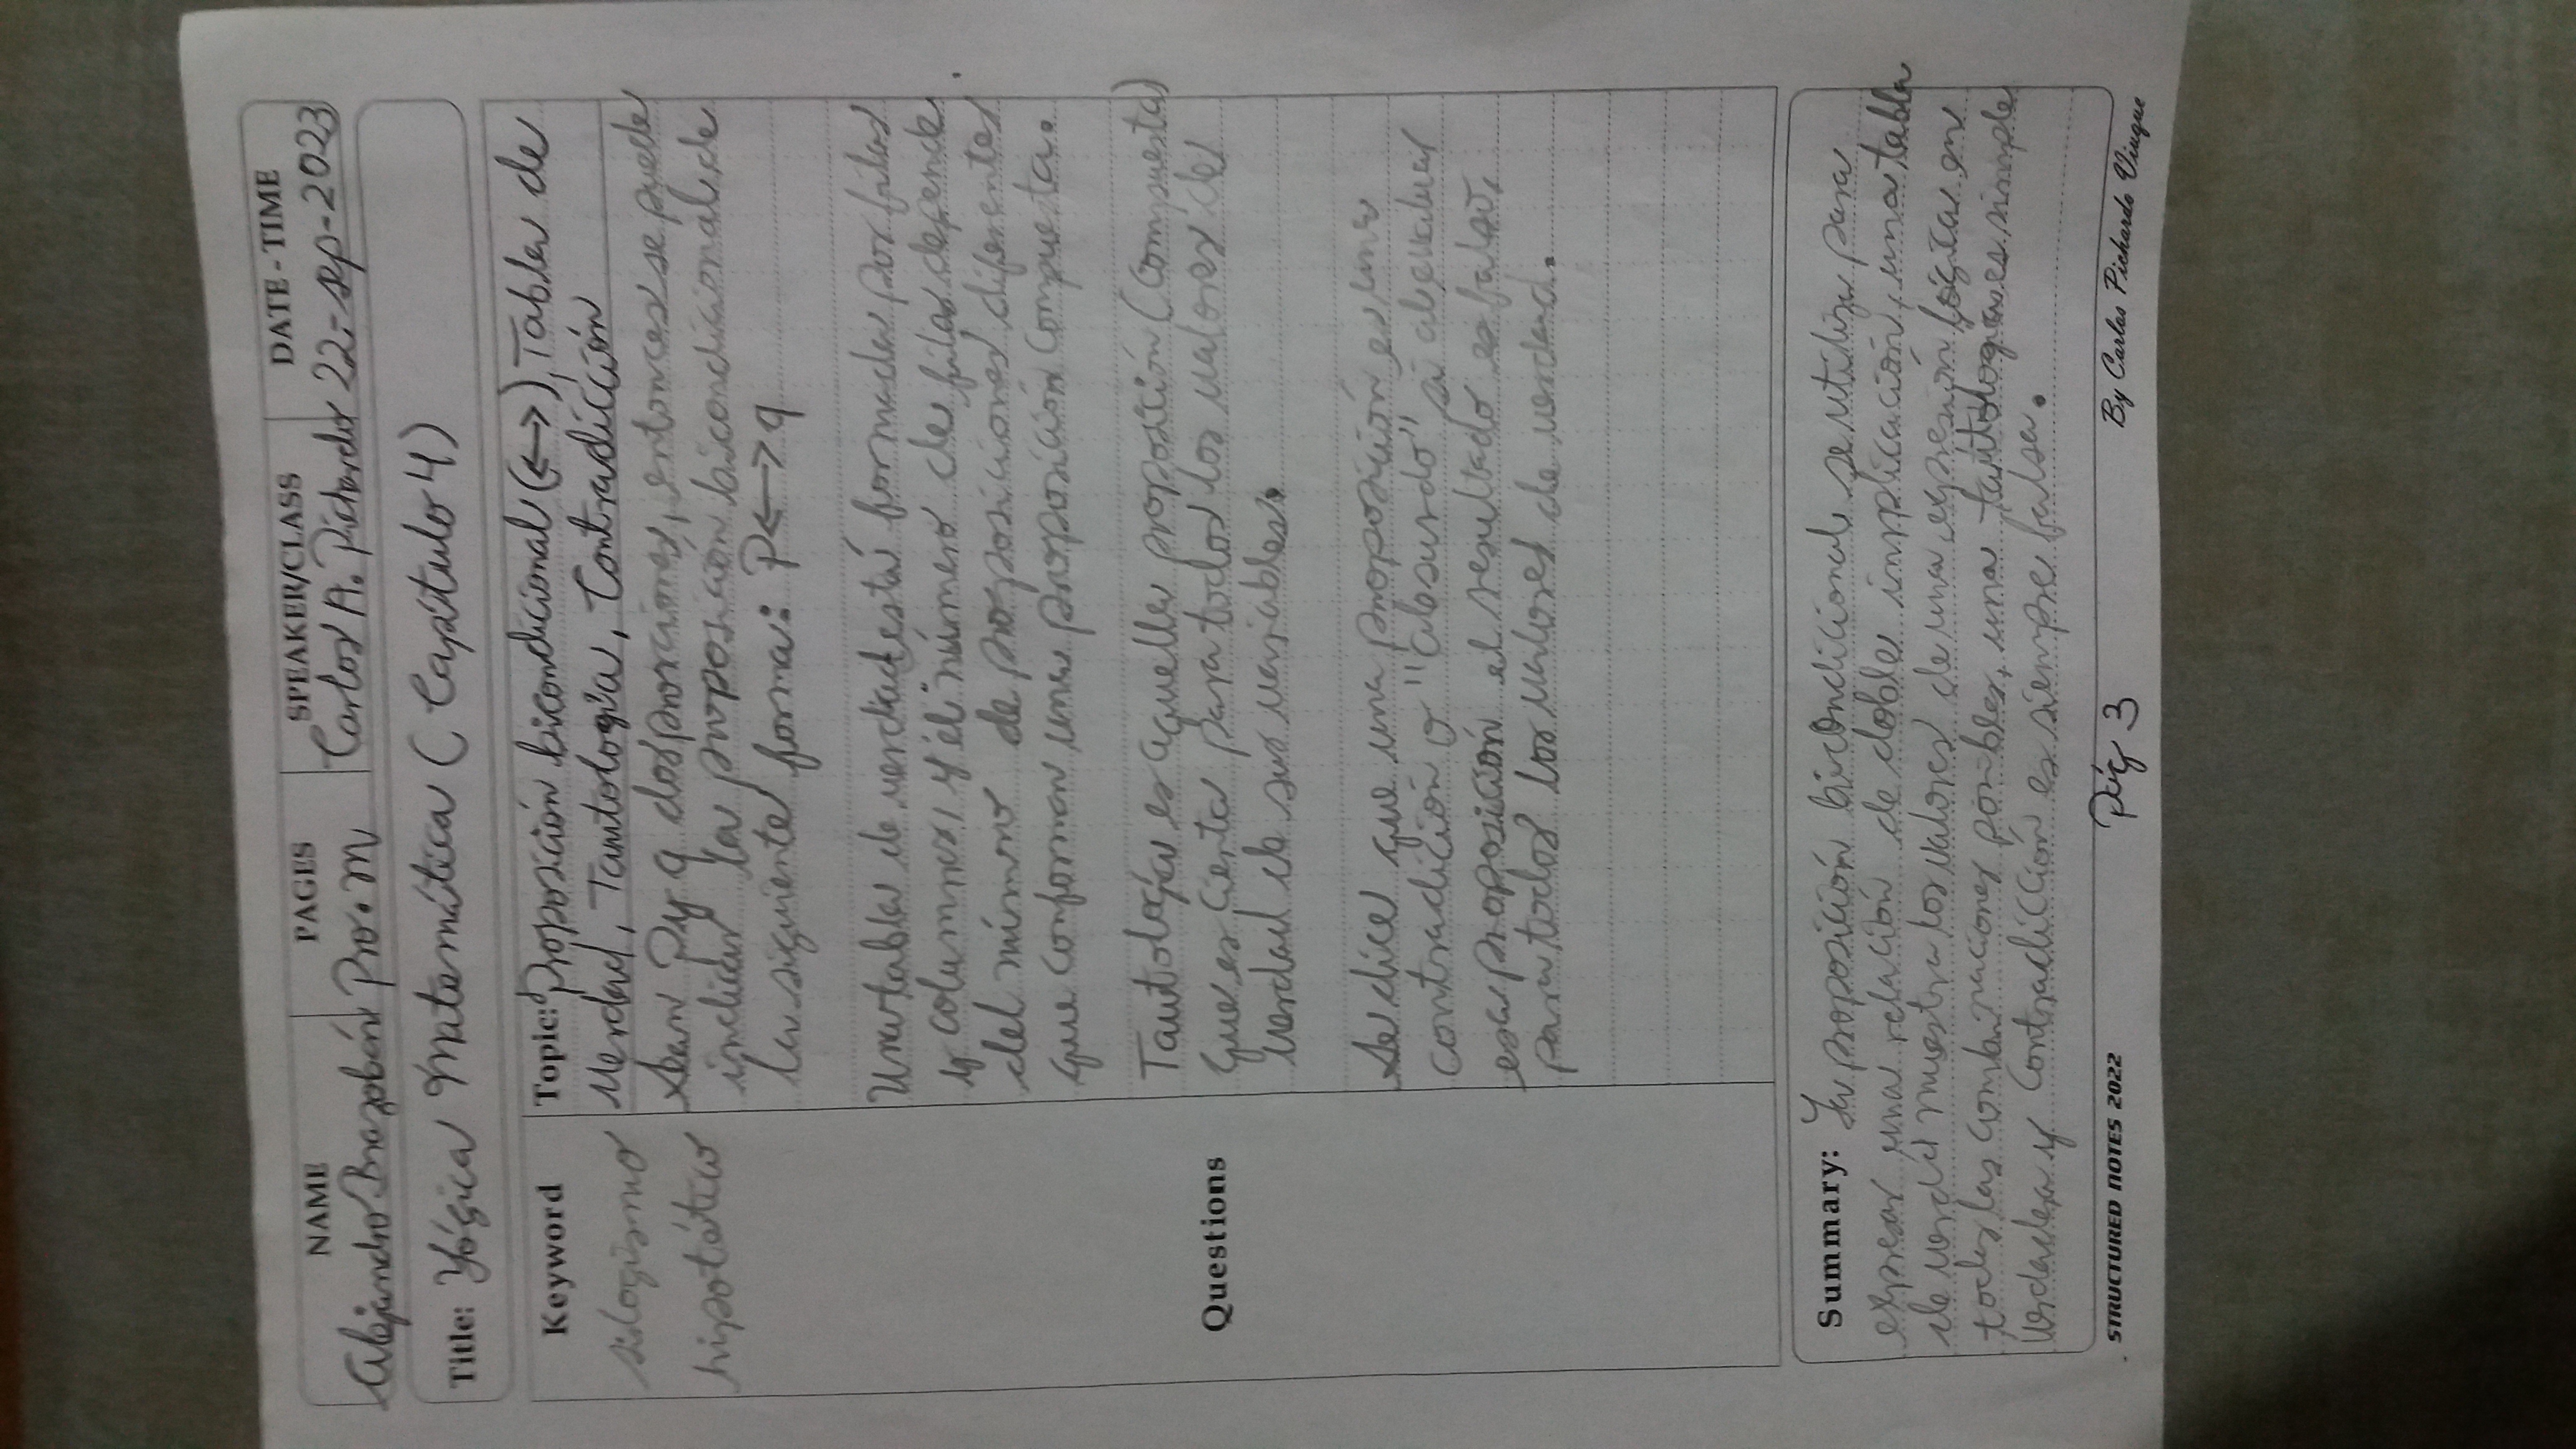 NAME PAGES SPEAKER/CLASS DATE - TIME
Alejandro Brazobán Pro. M Carlos A. Pichardo 22-sep-2023
Title: Lógica Matemática (Capítulo 4)
Keyword
silogismo
hipotético
Topic: Proposición bicondicional (<->), Tabla de
Verdad, Tautología, Contradicción
Sean P y q dos prorciones, entonces se puede
indicar la proposición bicondicional de
la siguiente forma: P<->q
Una tabla de verdad está formada por filas
y columnas, y el número de filas depende
del número de proposiciones diferentes
que conforman una proposición compuesta.
Tautología es aquella proposición (compuesta)
que es cierta para todos los valores de
verdad de sus variables.
Questions
Se dice que una proposición es una
contradición o "absurdo" si al evaluar
esa proposición el resultado es falso,
para todos los valores de verdad.
Summary: La proposición bicondicional se utiliza para
expresar una relación de doble implicación, una tabla
de verdad muestra los valores de una expresión lógica en
todas las combinaciones posibles, una tautología es simple
verdadera y contradicción es siempre falsa.
STRUCTURED NOTES 2022 Pág 3 By Carlos Pichardo Viuque